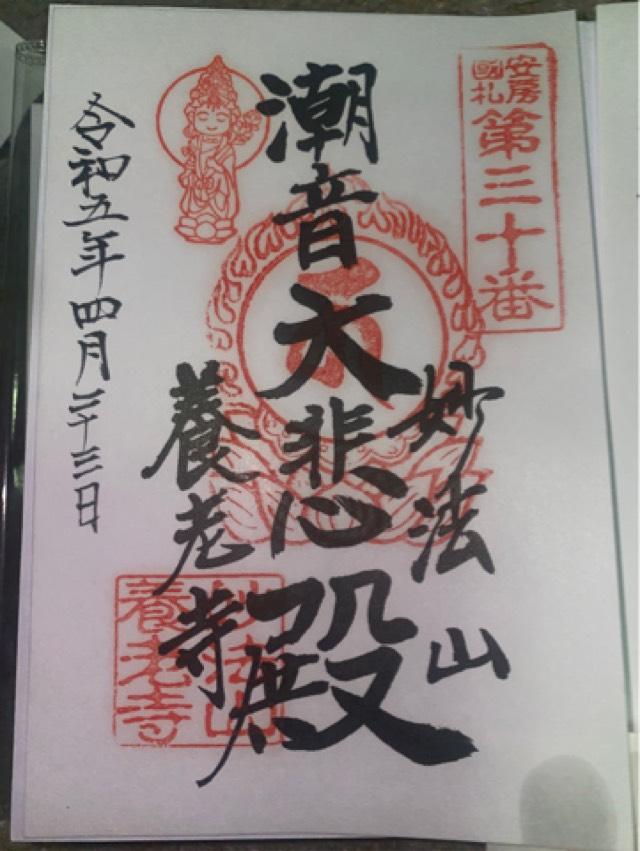 安房
國札
第三十番
妙法山
潮音大悲殿
養老寺
妙法山
養老寺
令和五年四月二十三日